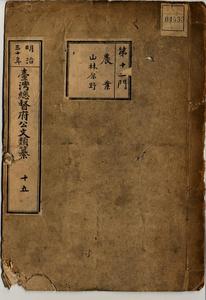 第十一門
農業
山林原野
明治
三十年
臺灣總督府公文類纂
十五